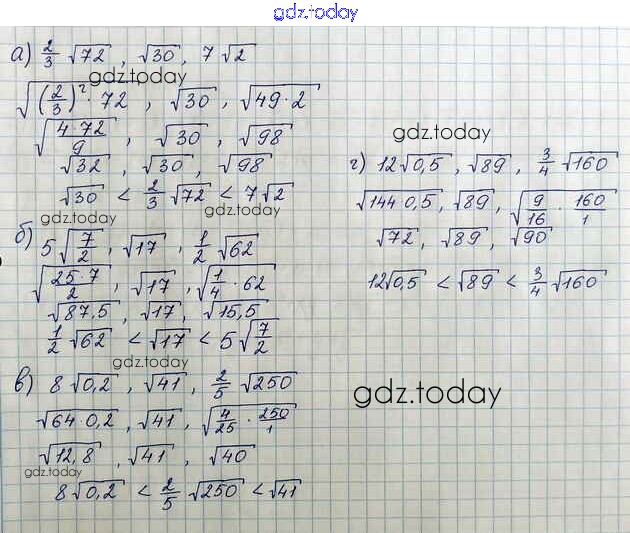 gdz.today
а) 2/3 √72, √30, 7√2
gdz.today
√((2/3)²·72), √30, √(49·2)
√(4·72/9), √30, √98
√32, √30, √98
√30 < 2/3 √72 < 7√2
gdz.today gdz.today
б) 5√(7/2), √17, 1/2 √62
√(25·7/2), √17, √(1/4·62)
√87,5, √17, √15,5
1/2 √62 < √17 < 5√(7/2)
gdz.today
в) 8√0,2, √41, 2/5 √250
√(64·0,2), √41, √(4/25·250/1)
√12,8, √41, √40
gdz.today
8√0,2 < 2/5 √250 < √41
gdz.today
г) 12√0,5, √89, 3/4 √160
√(144·0,5), √89, √(9/16·160/1)
√72, √89, √90
12√0,5 < √89 < 3/4 √160
gdz.today